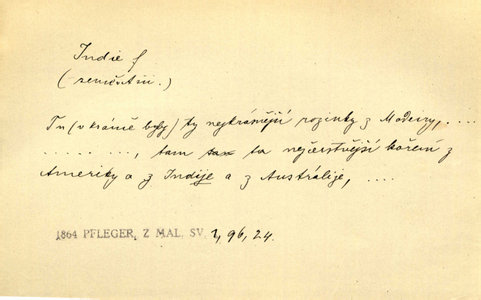 Indie f
(zeměpisn.)
Tu (v krámě byly) ty nejkrásnější rozinky z Madeiry, ....
........., tam ta nejčerstvější koření z
Ameriky a z Indije a z Austrálije, ....
1864 PFLEGER, Z MAL. SV. 1, 96, 24.